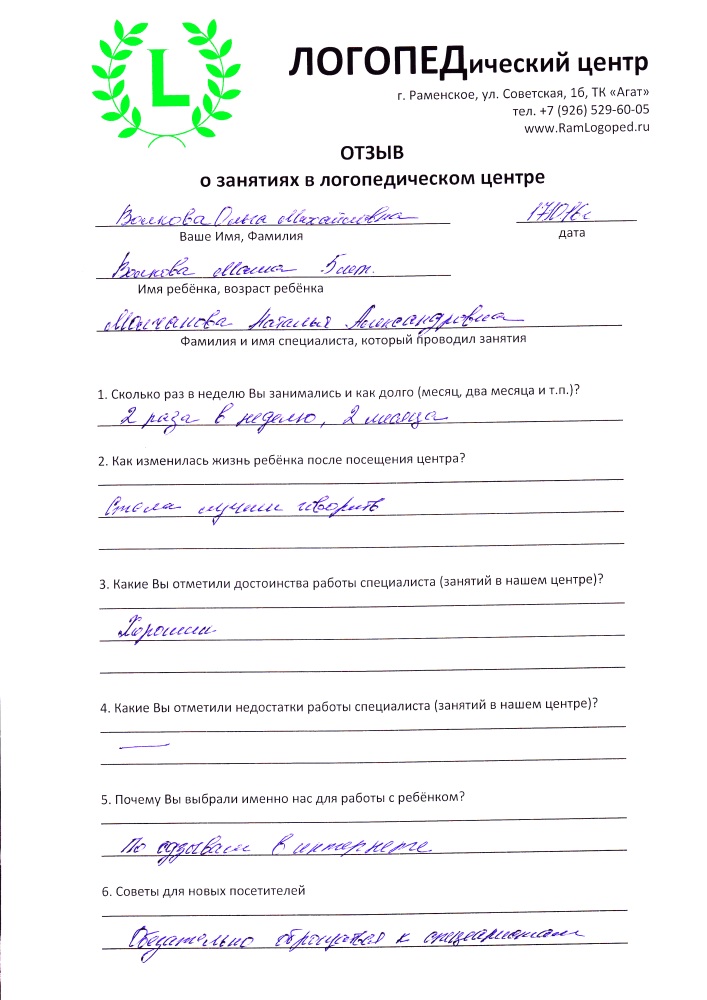 L
ЛОГОПЕДический центр
г. Раменское, ул. Советская, 1б, ТК «Агат»
тел. +7 (926) 529-60-05
www.RamLogoped.ru
ОТЗЫВ
о занятиях в логопедическом центре
Волкова Ольга Михайловна
Ваше Имя, Фамилия дата
Волкова Маша 5 лет.
Имя ребёнка, возраст ребёнка
Молчанова Наталья Александровна
Фамилия и имя специалиста, который проводил занятия
1. Сколько раз в неделю Вы занимались и как долго (месяц, два месяца и т.п.)?
2 раза в неделю, 2 месяца
2. Как изменилась жизнь ребёнка после посещения центра?
Стала лучше говорить
3. Какие Вы отметили достоинства работы специалиста (занятий в нашем центре)?
Хорошии
4. Какие Вы отметили недостатки работы специалиста (занятий в нашем центре)?
—
5. Почему Вы выбрали именно нас для работы с ребёнком?
По отзывам в интернете
6. Советы для новых посетителей
Обязательно обращаться к специалистам